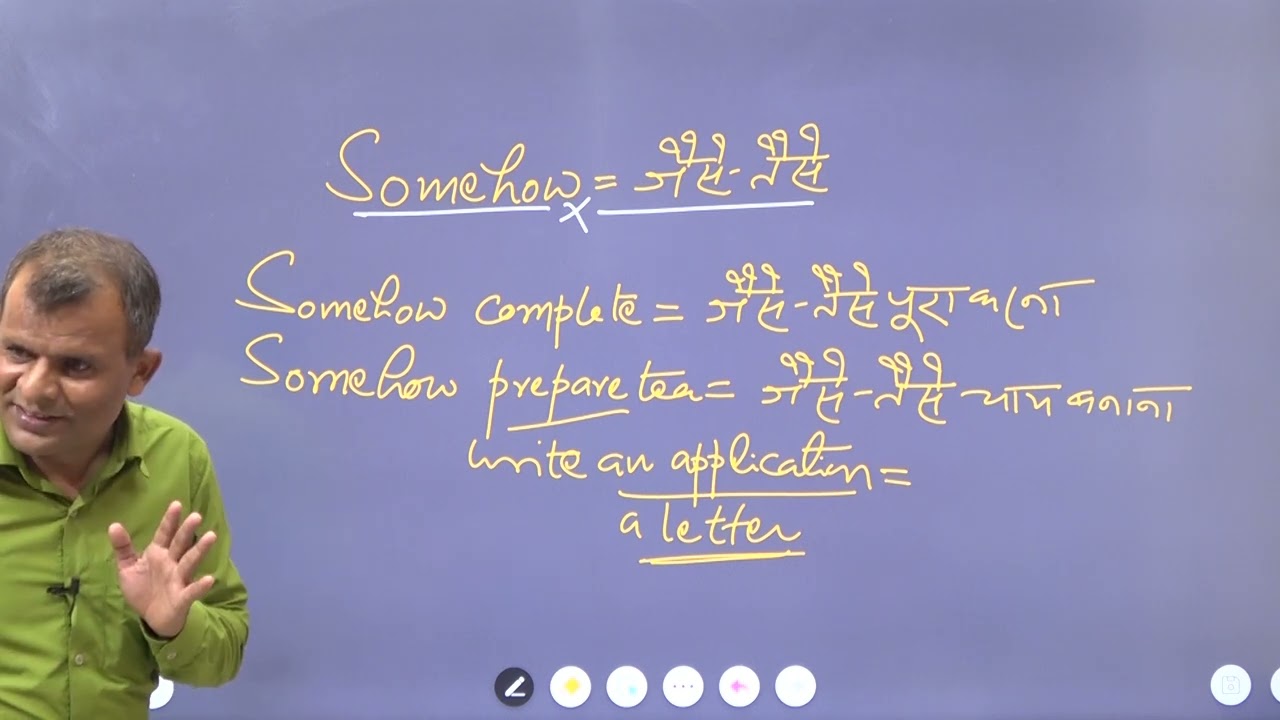 Somehow = जैसे-तैसे
Somehow complete = जैसे-तैसे पूरा करना
Somehow prepare tea = जैसे-तैसे चाय बनाना
write an application =
a letter